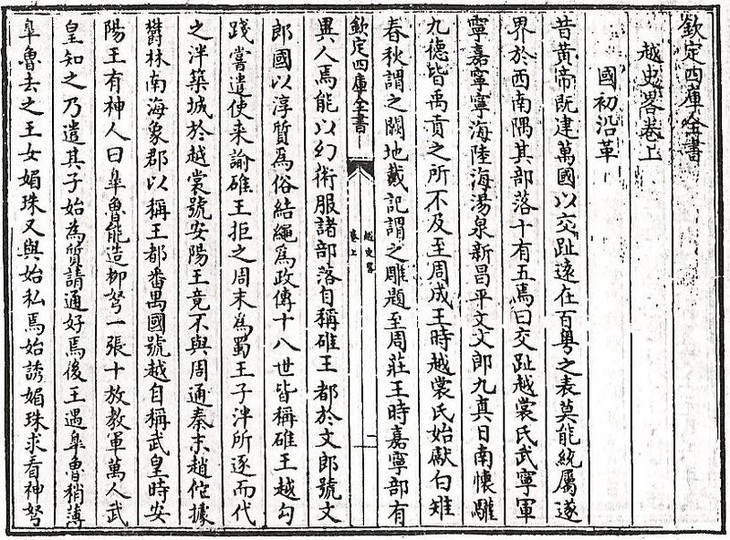 欽定四庫全書
越史畧卷上
國初沿革
昔黃帝既建萬國以交趾遠在百粤之表莫能統屬遂
界於西南隅其部落十有五焉曰交趾越裳氏武寧軍
寧嘉寧寧海陸海湯泉新昌平文文郎九真日南懷驩
九德皆禹貢之所不及至周成王時越裳氏始獻白雉
春秋謂之闕地戴記謂之雕題至周莊王時嘉寧部有
欽定四庫全書
越史畧
卷上
異人焉能以幻術服諸部落自稱碓王都於文郎號文
郎國以淳質為俗結繩為政傳十八世皆稱碓王越勾
踐嘗遣使来諭碓王拒之周末為蜀王子泮所逐而代
之泮築城於越裳號安陽王竟不與周通秦末趙佗據
欝林南海象郡以稱王都番禺國號越自稱武皇時安
陽王有神人曰臯魯能造栁弩一張十放教軍萬人武
皇知之乃遣其子始為質請通好焉後王遇臯魯稍薄
臯魯去之王女媚珠又與始私焉始誘媚珠求看神弩